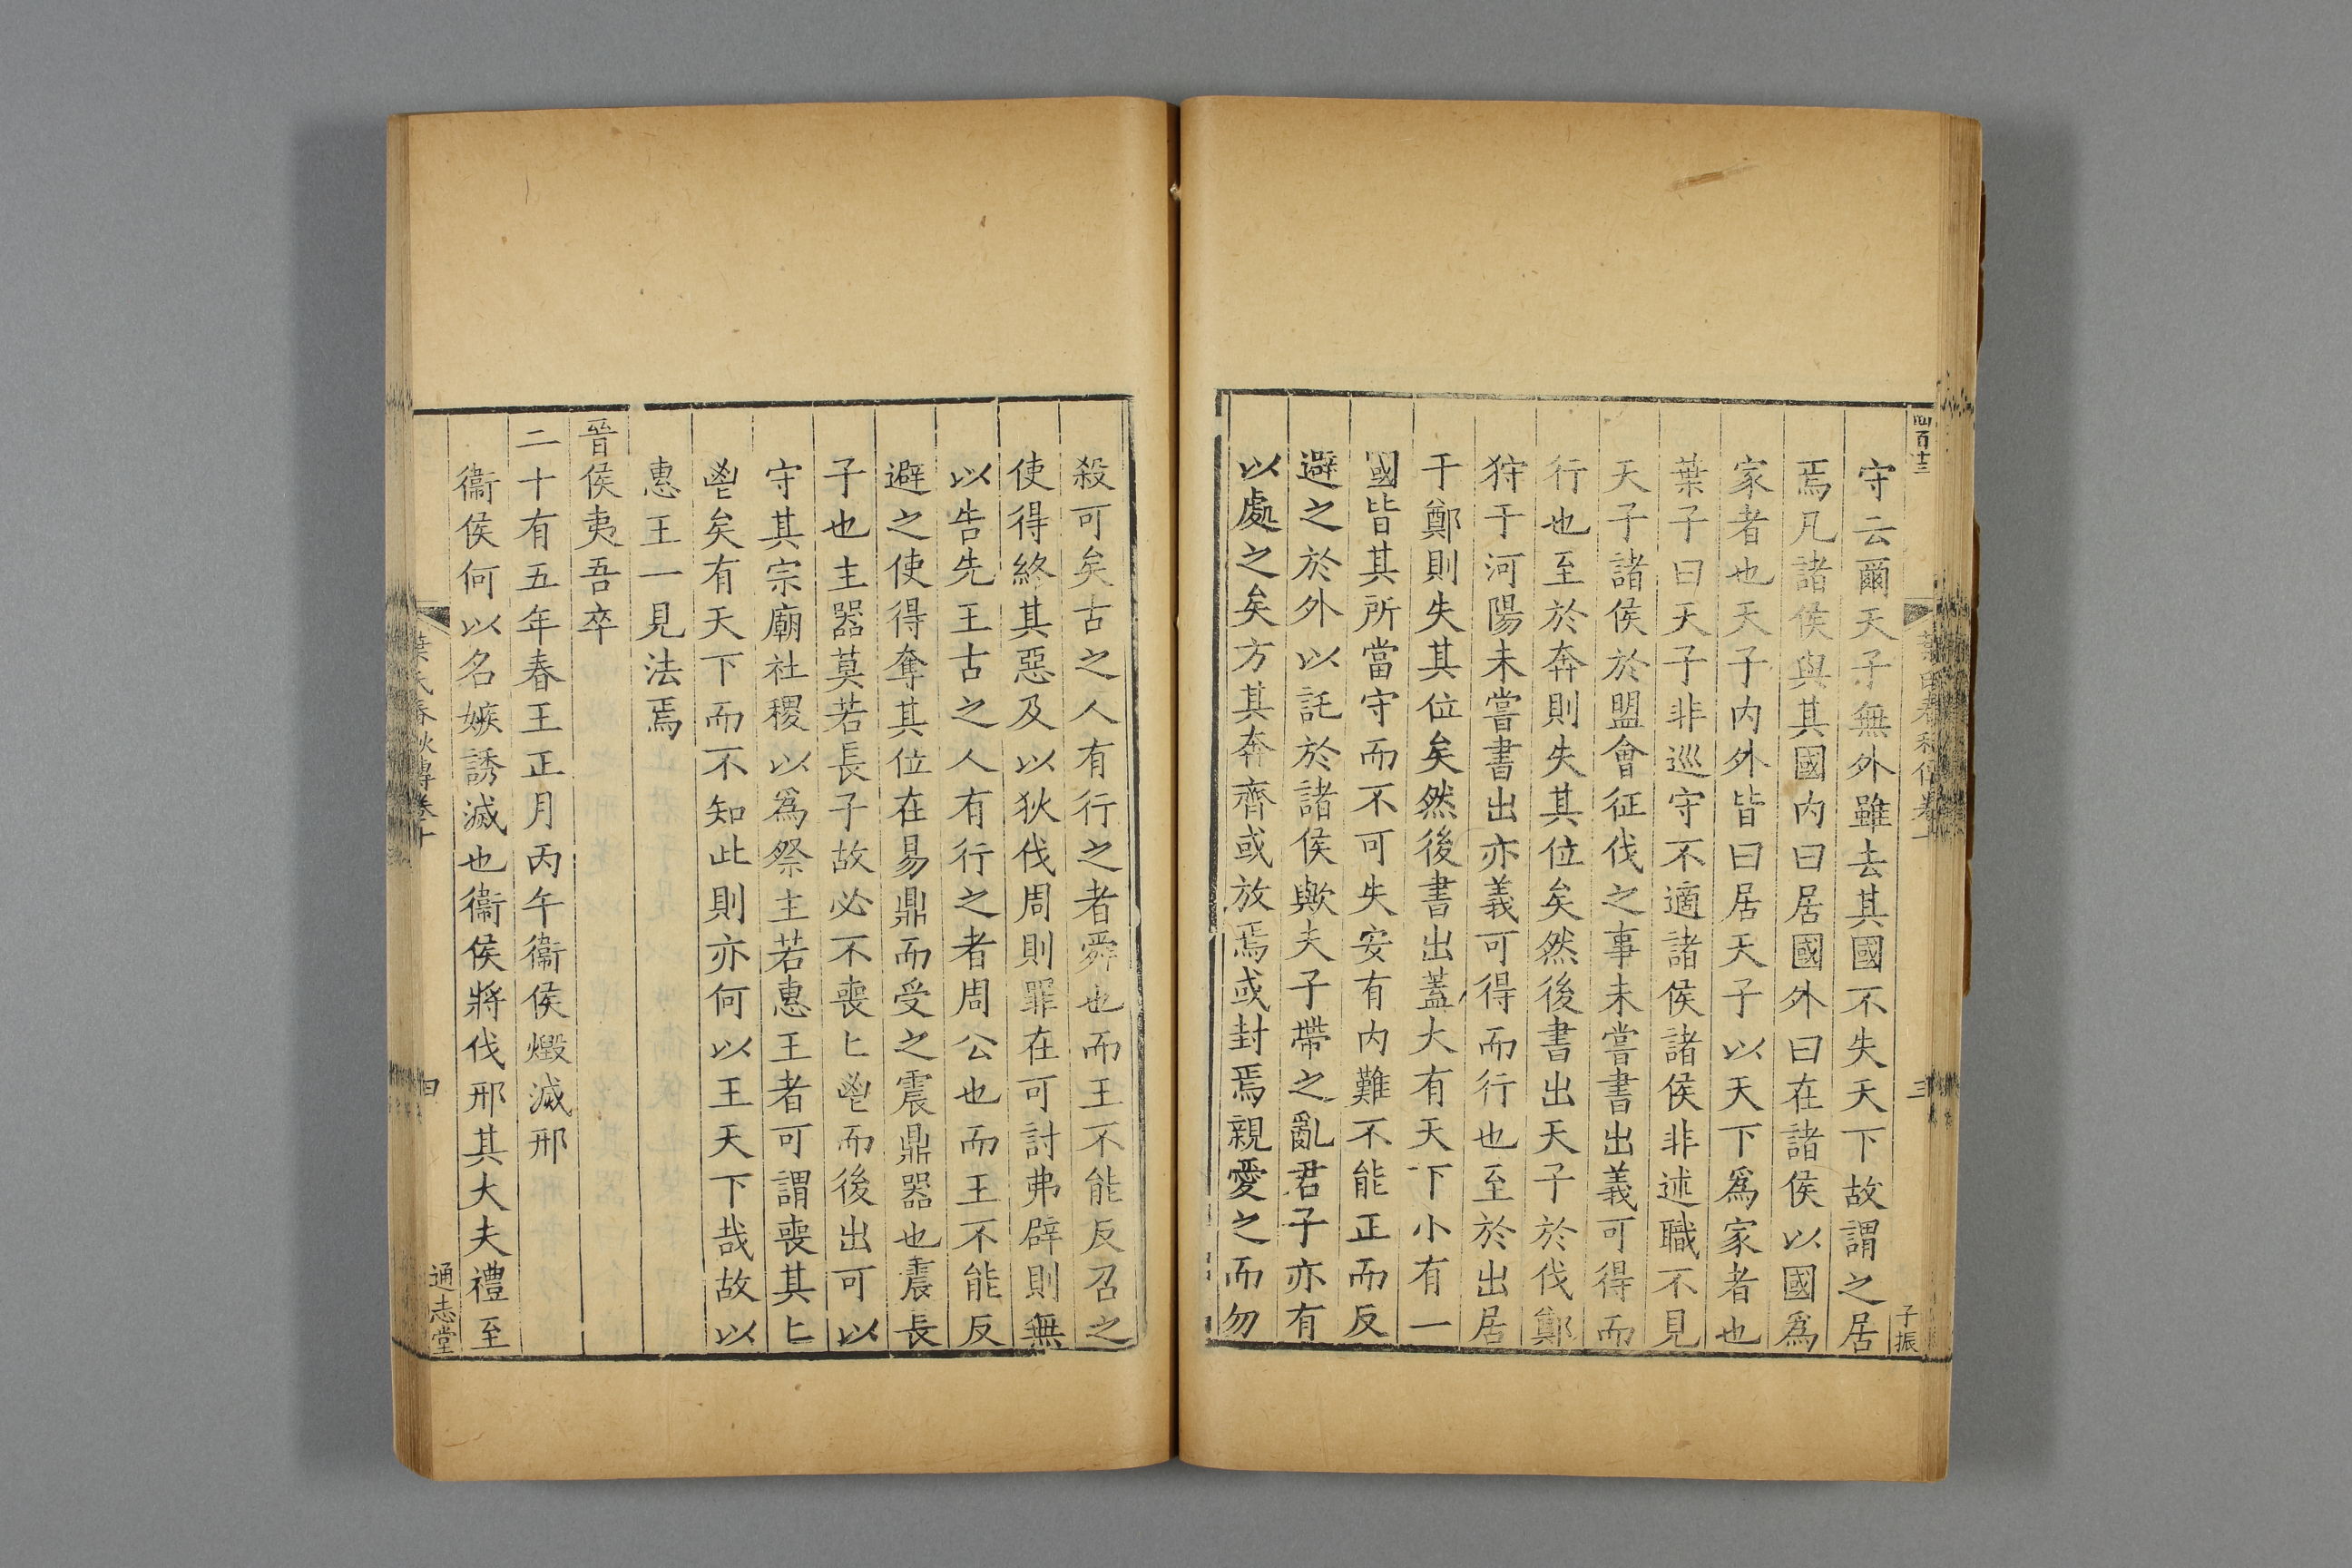 四百十三
子振
守云爾天子無外雖去其國不失天下故謂之居
焉凡諸侯與其國內曰居國外曰在諸侯以國爲
家者也天子內外皆曰居天子以天下爲家者也
葉子曰天子非巡守不適諸侯諸侯非述職不見
天子諸侯於盟會征伐之事未嘗書出義可得而
行也至於奔則失其位矣然後書出天子於伐鄭
狩于河陽未嘗書出亦義可得而行也至於出居
于鄭則失其位矣然後書出蓋大有天下小有一
國皆其所當守而不可失安有內難不能正而反
避之於外以託於諸侯歟夫子帶之亂君子亦有
以處之矣方其奔齊或放焉或封焉親愛之而勿
殺可矣古之人有行之者舜也而王不能反召之
使得終其惡及以狄伐周則罪在可討弗辟則無
以告先王古之人有行之者周公也而王不能反
避之使得奪其位在易鼎而受之震鼎器也震長
子也主器莫若長子故必不喪匕鬯而後出可以
守其宗廟社稷以爲祭主若惠王者可謂喪其匕
鬯矣有天下而不知此則亦何以王天下哉故以
惠王一見法焉
晉侯夷吾卒
二十有五年春王正月丙午衞侯燬滅邢
衞侯何以名嫉誘滅也衞侯將伐邢其大夫禮至
葉氏春秋傳卷十
四
通志堂